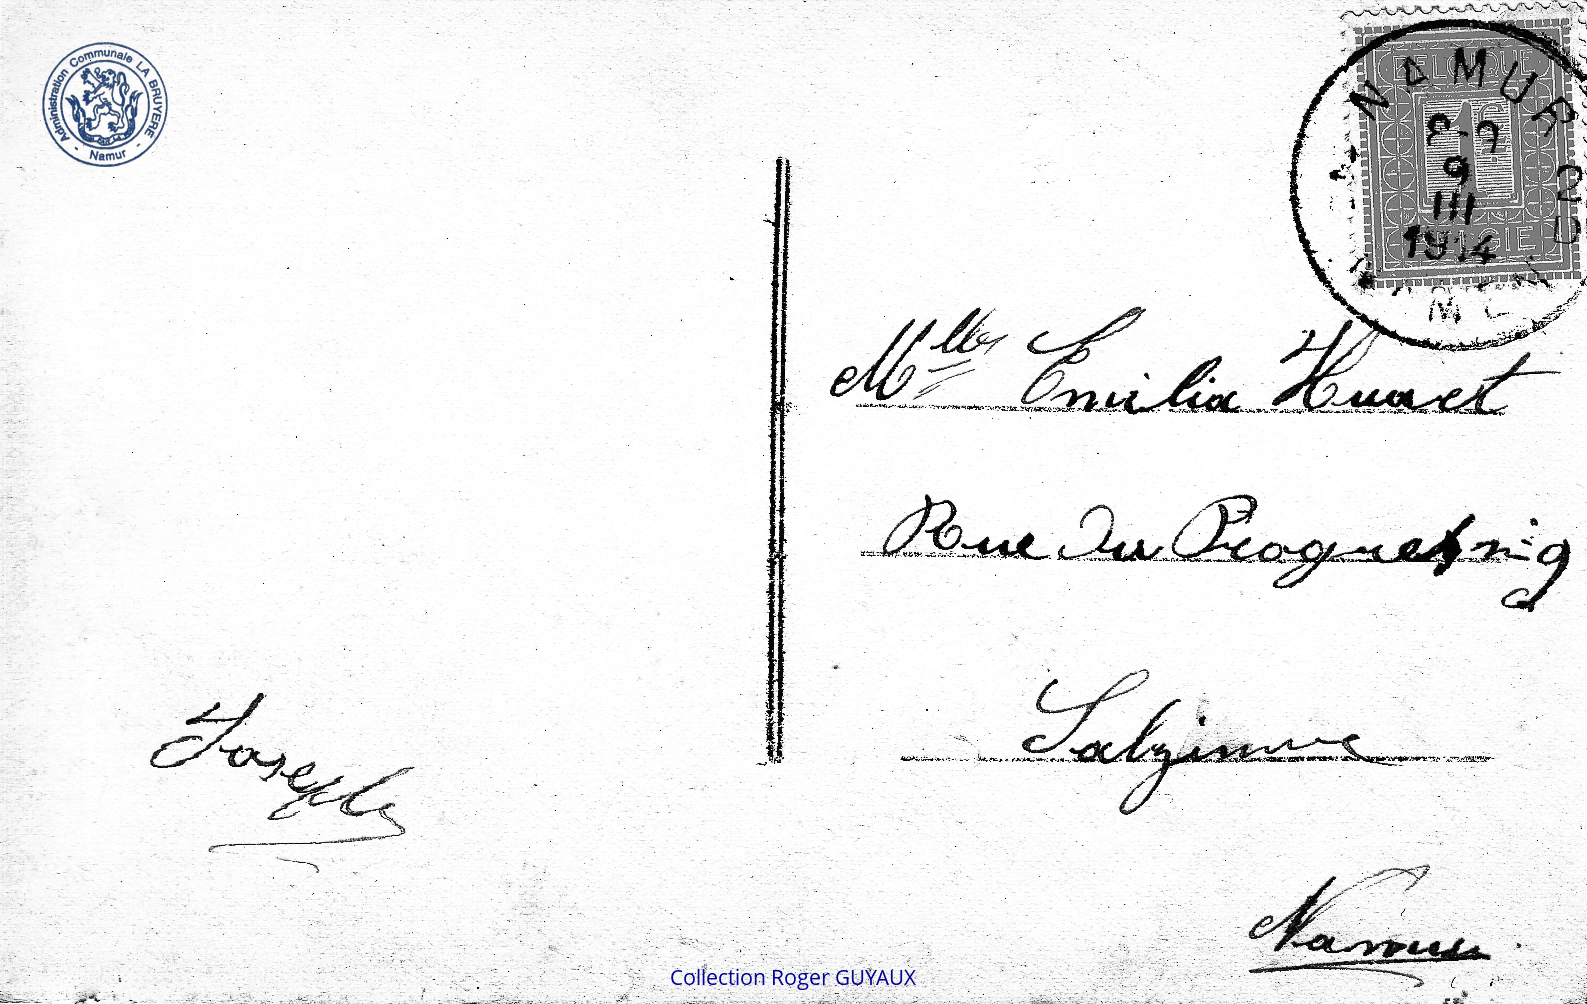 Administration Communale LA BRUYERE
- Namur -
BELGIQUE
1
NAMUR
9
III
1914
Mlles Emilia Huart
Rue Du Progres n: 9
Salzinne
Joseph
Namur
Collection Roger GUYAUX